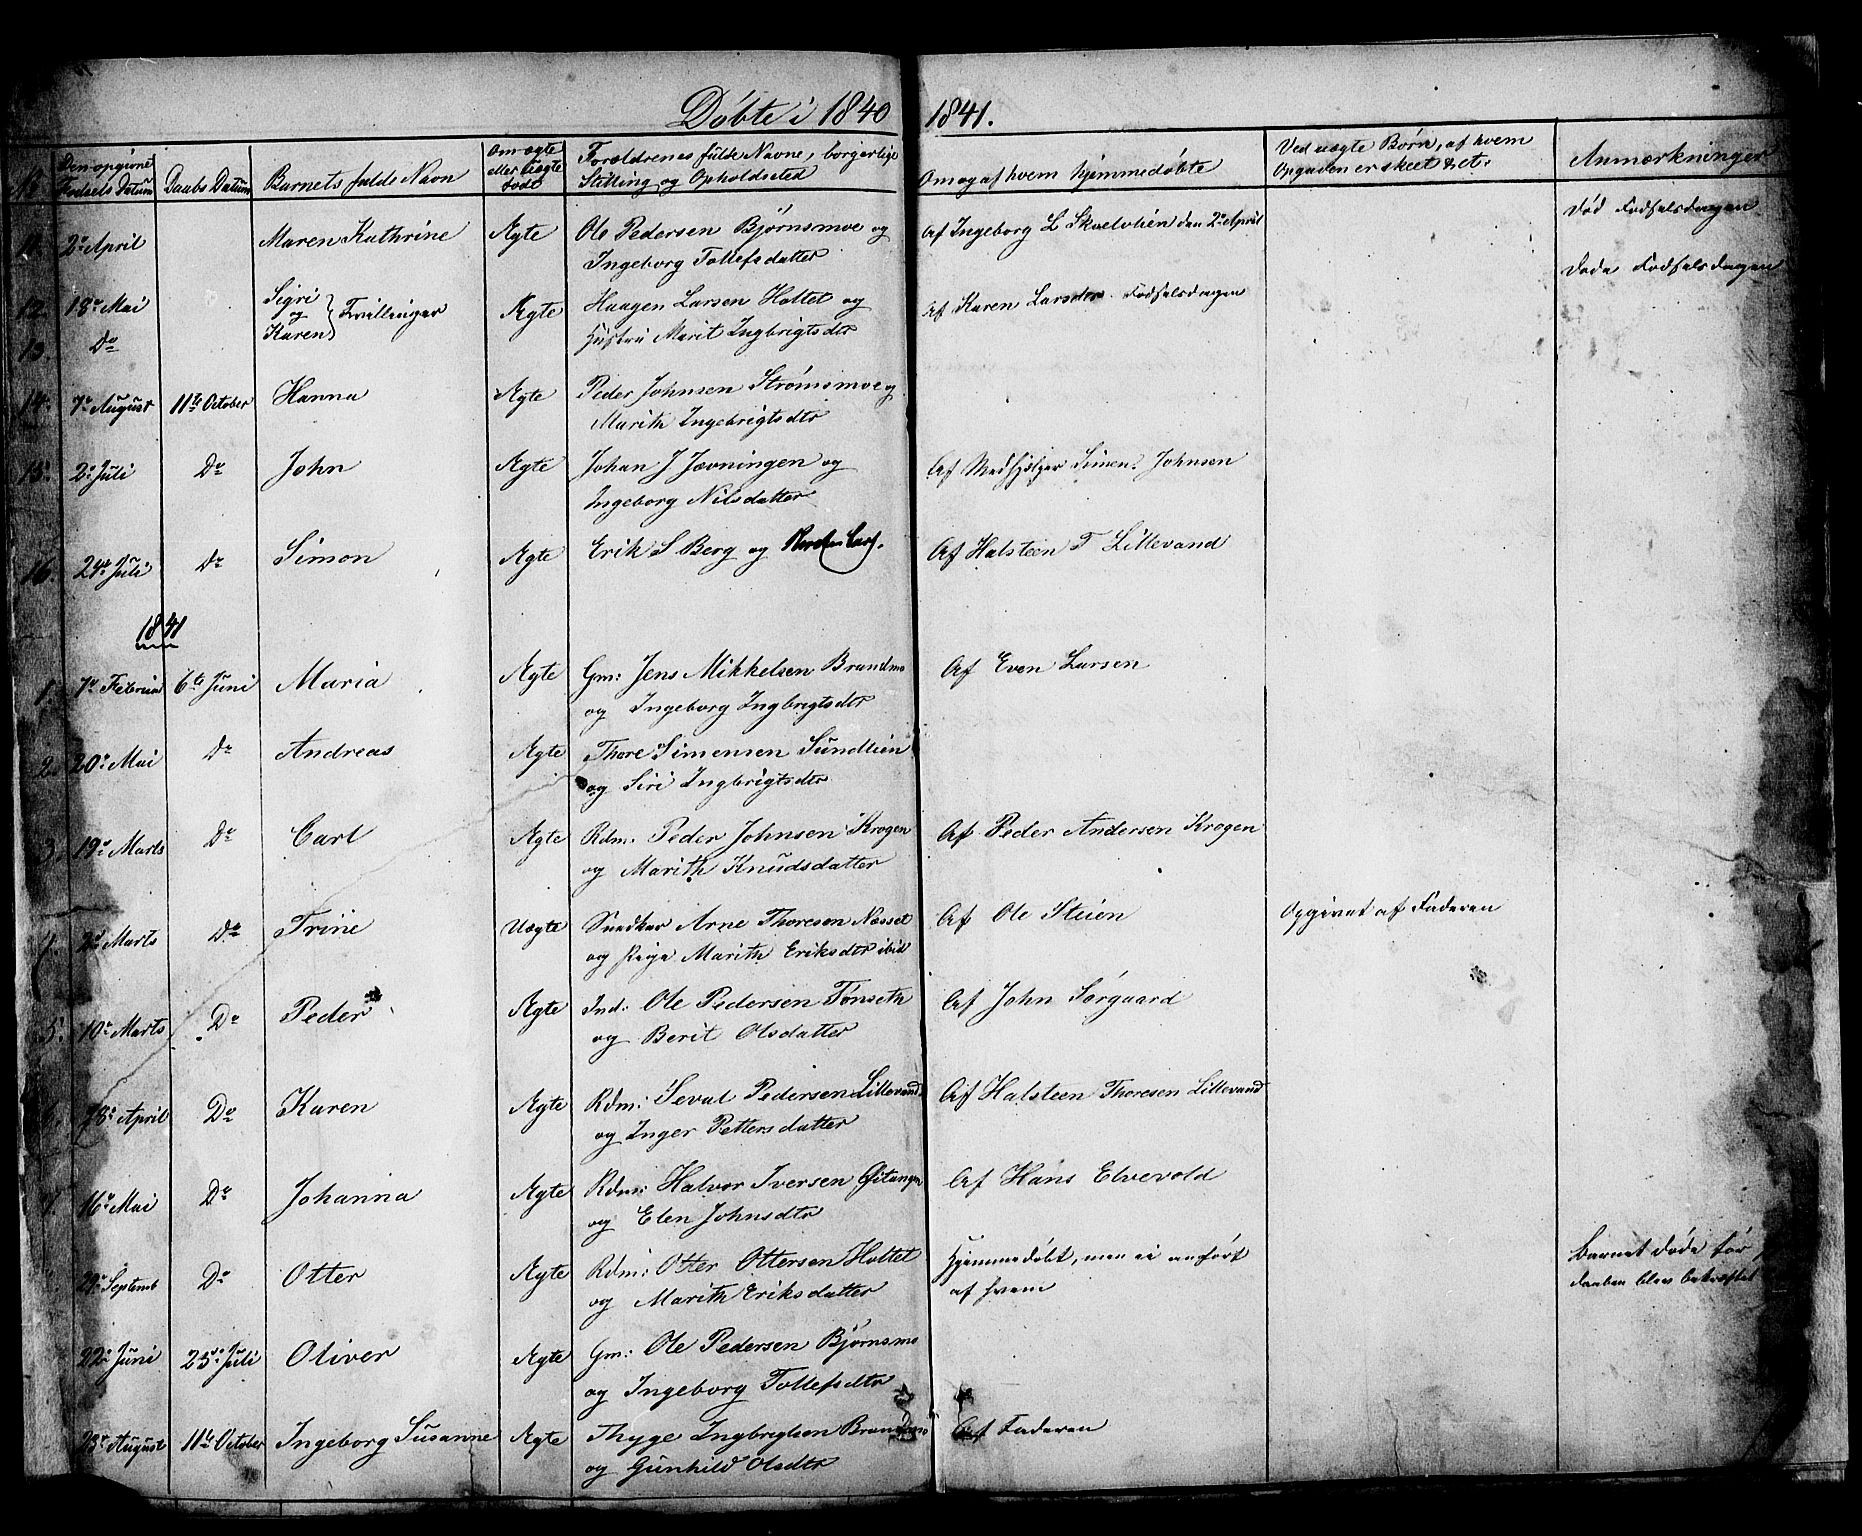 Døbte i 1840 1841.
No Den opgivne Fødsels Datum Daabs Datum Barnets fulde Navn Om ægte eller uægte født Forældrenes fulde Navne, borgerlige Stilling og Opholdssted Om og af hvem hjemmedøbte Ved uægte Børn, af hvem Opgaden er skeet &ct. Anmærkninger
11. 2de April Maren Kathrine Ægte Ole Pedersen Bjørnsmoe og Af Ingeborg L Skaelvlien den 2de April død Fødselsdagen
Ingeborg Tollefsdatter
12. 18de Mai Sigri Ægte Haagen Larsen Holtet og Af Karen Larsdtr. Fødselsdagen døde Fødselsdagen
og } Tvillinger
13. Do Karen Hustru Marit Ingbrigtsdtr
14. 7de August 11te October Hanna Ægte Peder Johnsen Strømsmoe og
Marith Ingebrigtsdtr
15. 2de Juli Do John Ægte Johan J Jævningen og Af Medhjelper Simen Johnsen
Ingeborg Nilsdatter
16. 24de Juli Do Simon Ægte Erik S Berg og Af Halsteen T Lillevand
1841
1. 7de Februar 6te Juni Maria Ægte Gm: Jens Mikkelsen Brandmo Af Even Larsen
og Ingeborg Ingbrigtsdtr
2. 20de Mai Do Andreas Ægte Thore Simensen Sundlien
og Siri Ingbrigtsdtr
3. 19de Marts Do Carl Ægte Rdm: Peder Johnsen Krogen Af Peder Andersen Krogen
og Marith Knudsdatter
4. 2de Marts Do Trine Uægte Snedker Arne Thoresen Næsset Af Ole Steien Opgivet af Faderen
og Pige Marith Eriksdtr ibid
5. 10de Marts Do Peder Ægte Ind: Ole Pedersen Tønseth Af John Sørgaard
og Berit Olsdatter
28de April Do Karen Ægte Rdm: Sevat Pedersen Lillevand Af Halsteen Thoresen Lillevand
og Inger Pettersdatter
7. 16de Mai Do Johanna Ægte Rdm: Halvor Iversen Øitangen Af Hans Elvevold
og Elen Johnsdtr
29de Septemb Do Otter Ægte Rdm: Otter Ottersen Holtet Hjemmedøbt, men ei anført Barnet døde før
og Marith Eriksdatter af hvem daaben blev bekræftet
22de Juni 25de Juli Oliver Ægte Gm: Ole Pedersen Bjørnsmo
og Ingeborg Tollefsdtr
23de August 11te October Ingeborg Susanne Ægte Thyge Ingbrigtsen Brandmo Af Faderen
og Gunhild Olsdtr